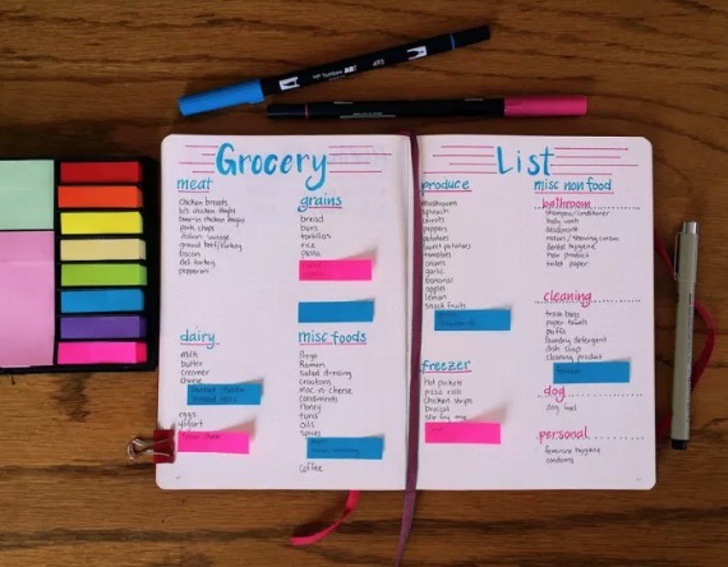 Grocery List
meat
Chicken breasts
b/s chicken thighs
bone-in chicken thighs
pork chops
italian sausage
ground beef/turkey
bacon
deli turkey
pepperoni
grains
bread
buns
tortillas
rice
pasta
dairy
milk
butter
creamer
cheese
eggs
yogurt
misc foods
Prego
Ramen
Salad dressing
croutons
Mac-n-cheese
condiments
Honey
tuna
oils
spices
Coffee
produce
mushrooms
spinach
carrots
peppers
potatoes
sweet potatoes
tomatoes
onions
garlic
bananas
apples
lemon
snack fruits
freezer
Hot pockets
pizza rolls
Chicken strips
broccoli
stir fry mix
misc non food
bathroom
shampoo/conditioner
body wash
deodorant
razors/shaving cream
dental hygiene
hair product
toilet paper
cleaning
trash bags
paper towels
puffs
laundry detergent
dish soap
cleaning product
dog
dog food
personal
feminine hygiene
condoms
Tombow ABT
495